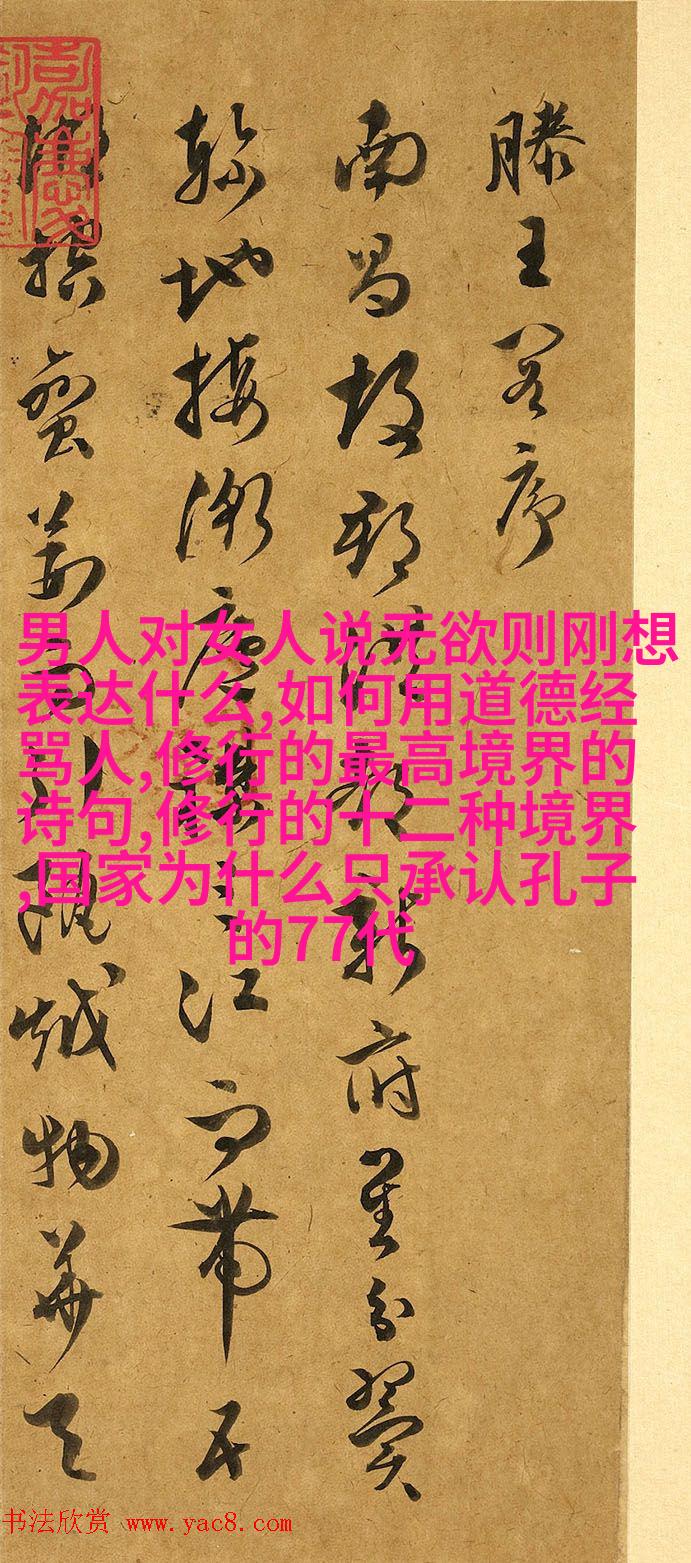 滕王閣序
南昌故郡洪都新府星分翼
軫地接衡廬襟三江而帶五
湖控蠻荆而引甌越物華天
男人对女人说无欲则刚想
表达什么,如何用道德经
骂人,修行的最高境界的
诗句,修行的十二种境界
,国家为什么只承认孔子
的77代
书法欣赏 www.yac8.com